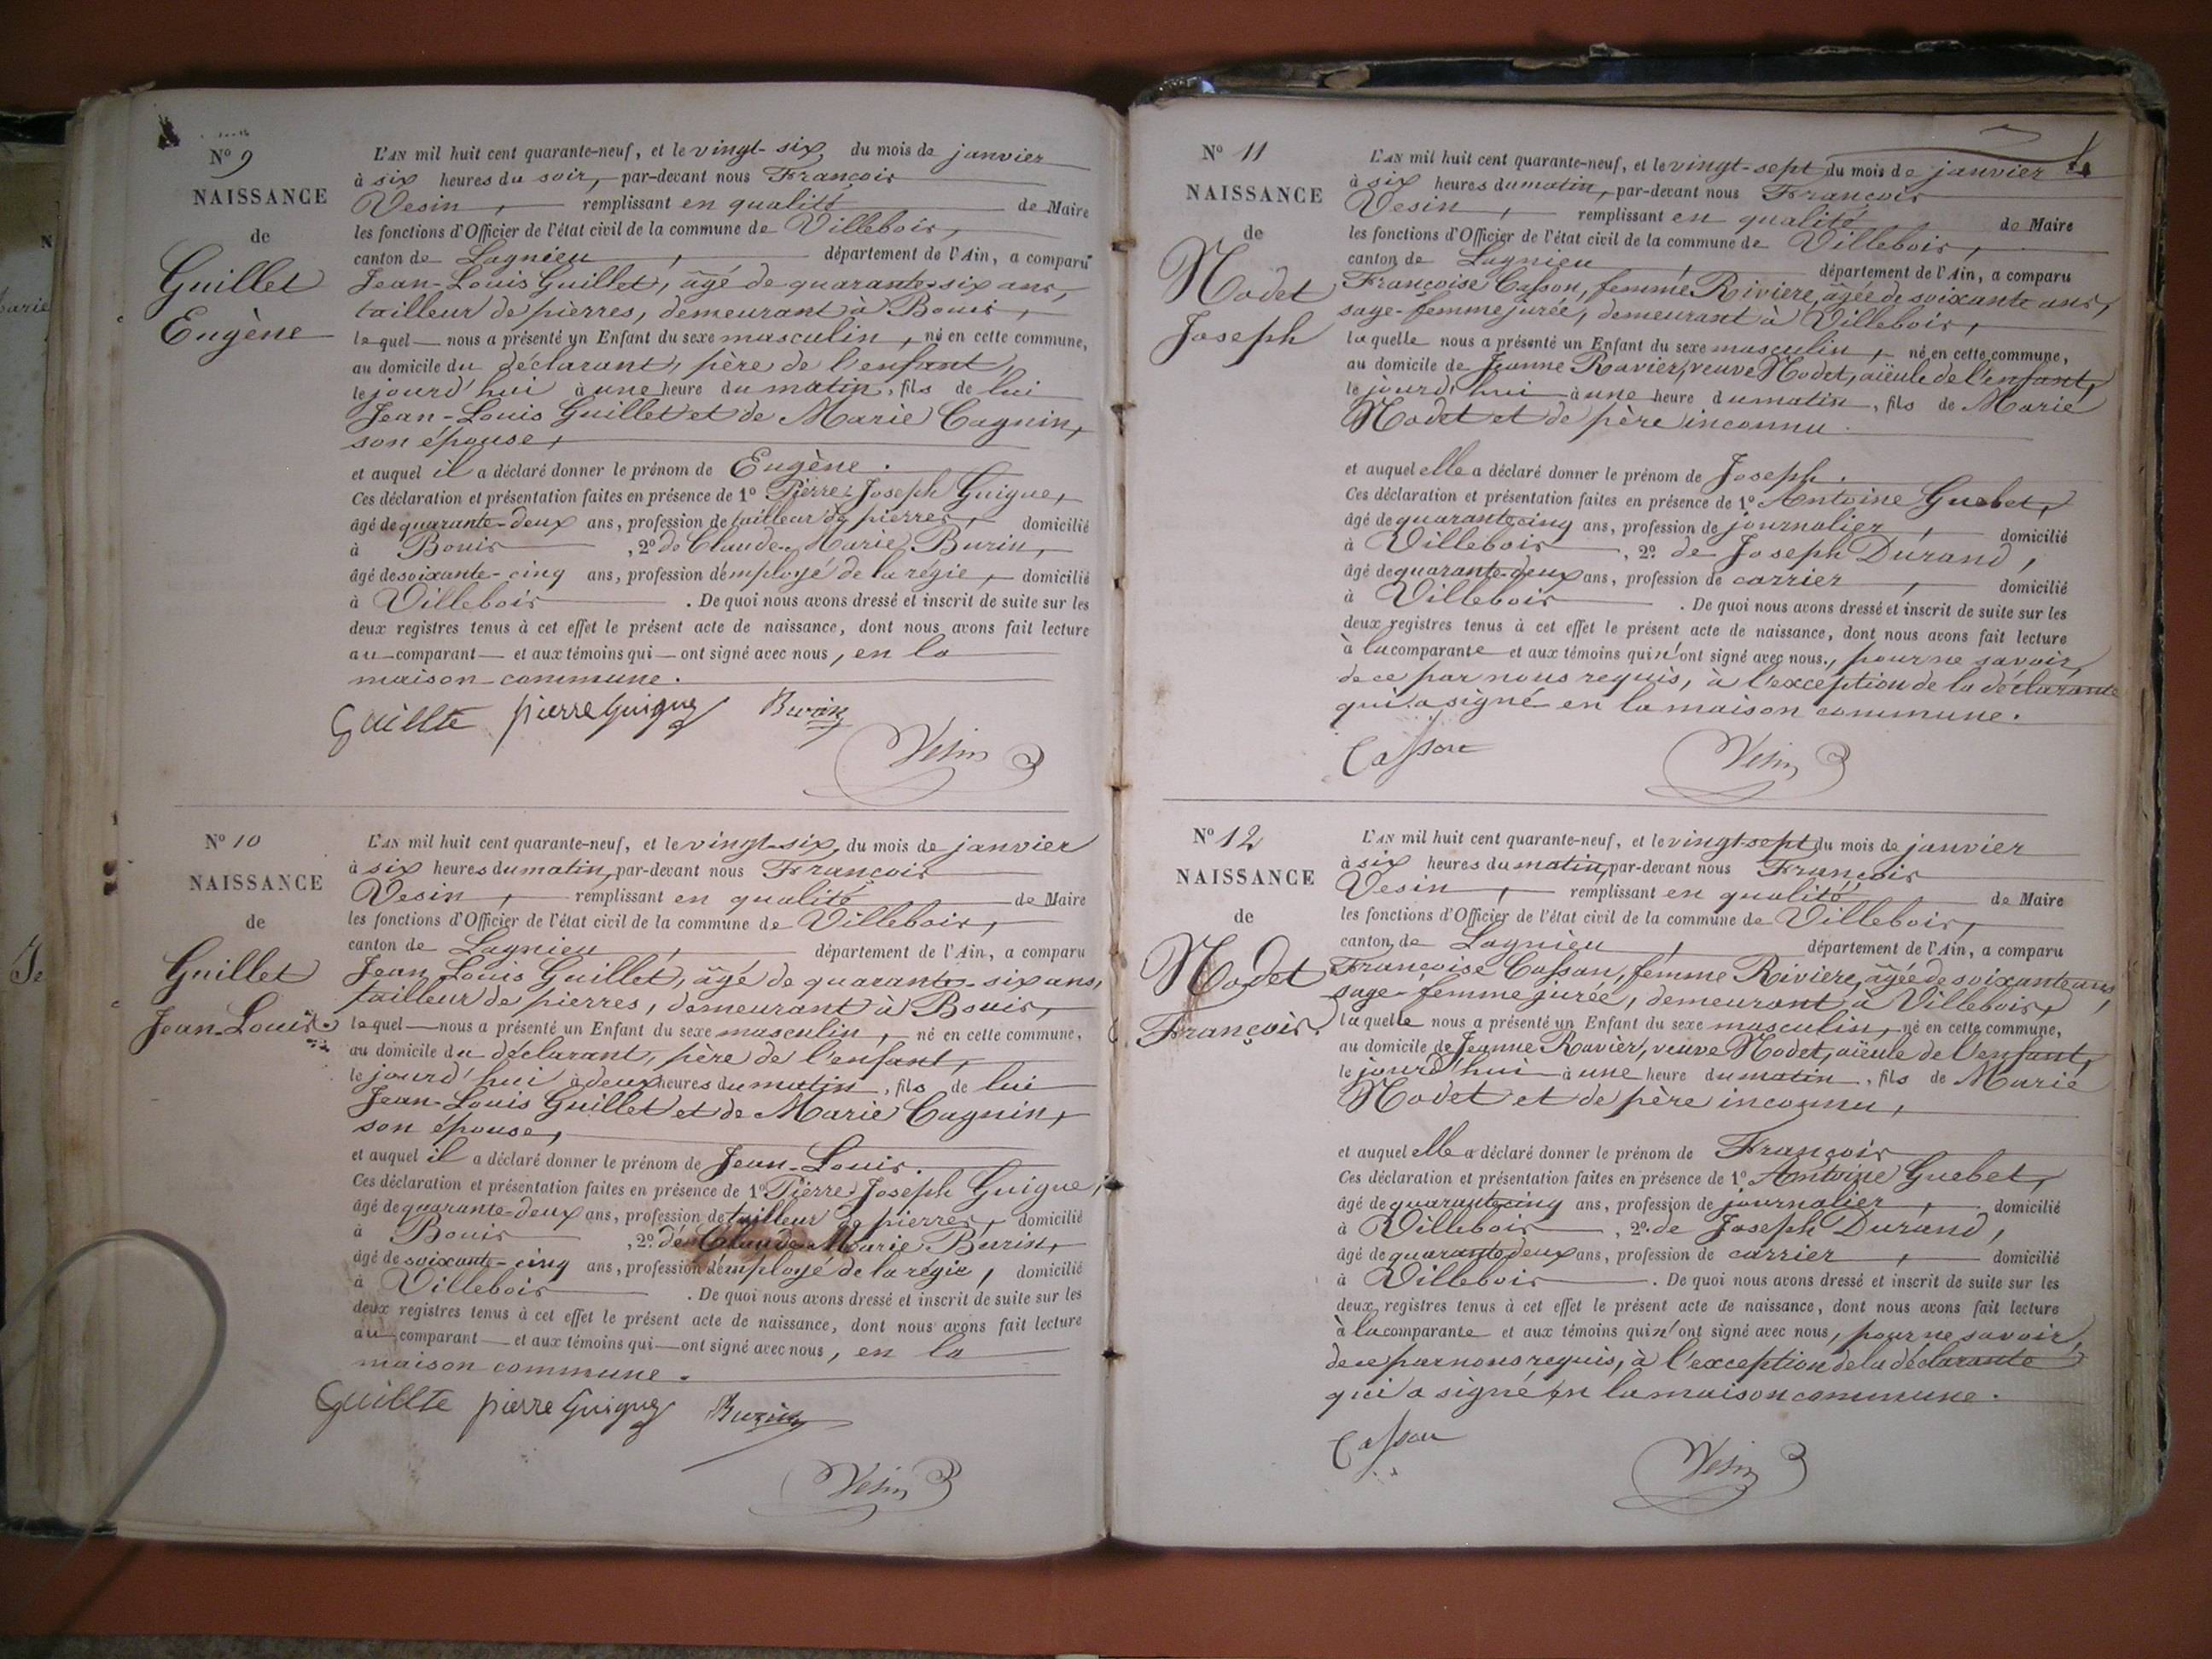 Nº 9
NAISSANCE
de
Guillet
Eugène
L'AN mil huit cent quarante-neuf, et le vingt-six, du mois de janvier
à six heures du soir, par-devant nous François
Vesin, remplissant en qualité de Maire
les fonctions d'Officier de l'état civil de la commune de Villebois,
canton de Lagnieu, département de l'Ain, a comparu
Jean-Louis Guillet, âgé de quarante-six ans,
tailleur de pierres, demeurant à Bouis,
lequel nous a présenté un Enfant du sexe masculin, né en cette commune,
au domicile du déclarant, père de l'enfant,
le jourd'hui à une heure du matin, fils de lui
Jean-Louis Guillet et de Marie Cagnin,
son épouse,
et auquel il a déclaré donner le prénom de Eugène.
Ces déclaration et présentation faites en présence de 1º Pierre-Joseph Guigue,
âgé de quarante-deux ans, profession de tailleur de pierres, domicilié
à Bouis, 2º de Claude-Marie Burin,
âgé de soixante-cinq ans, profession d'employé de la régie, domicilié
à Villebois. De quoi nous avons dressé et inscrit de suite sur les
deux registres tenus à cet effet le présent acte de naissance, dont nous avons fait lecture
au comparant et aux témoins qui ont signé avec nous, en la
maison commune.
Guillte pierre Guigue Burin
Vesin
Nº 10
NAISSANCE
de
Guillet
Jean-Louis
L'AN mil huit cent quarante-neuf, et le vingt-six, du mois de janvier
à six heures du matin, par-devant nous François
Vesin, remplissant en qualité de Maire
les fonctions d'Officier de l'état civil de la commune de Villebois,
canton de Lagnieu, département de l'Ain, a comparu
Jean-Louis Guillet, âgé de quarante-six ans,
tailleur de pierres, demeurant à Bouis,
lequel nous a présenté un Enfant du sexe masculin, né en cette commune,
au domicile du déclarant, père de l'enfant,
le jourd'hui à deux heures du matin, fils de lui
Jean-Louis Guillet et de Marie Cagnin,
son épouse,
et auquel il a déclaré donner le prénom de Jean-Louis.
Ces déclaration et présentation faites en présence de 1º Pierre-Joseph Guigue,
âgé de quarante-deux ans, profession de tailleur de pierres, domicilié
à Bouis, 2º de Claude-Marie Burin,
âgé de soixante-cinq ans, profession d'employé de la régie, domicilié
à Villebois. De quoi nous avons dressé et inscrit de suite sur les
deux registres tenus à cet effet le présent acte de naissance, dont nous avons fait lecture
au comparant et aux témoins qui ont signé avec nous, en la
maison commune.
Guillte pierre Guigue Burin
Vesin
Nº 11
NAISSANCE
de
Nodet
Joseph
L'AN mil huit cent quarante-neuf, et le vingt-sept du mois de janvier
à six heures du matin, par-devant nous François
Vesin, remplissant en qualité de Maire
les fonctions d'Officier de l'état civil de la commune de Villebois,
canton de Lagnieu, département de l'Ain, a comparu
Françoise Casson, femme Riviere, âgée de soixante ans,
sage-femme jurée, demeurant à Villebois,
laquelle nous a présenté un Enfant du sexe masculin, né en cette commune,
au domicile de Jeanne Ravier, veuve Nodet, aïeule de l'enfant,
le jourd'hui à une heure du matin, fils de Marie
Nodet et de père inconnu
et auquel elle a déclaré donner le prénom de Joseph.
Ces déclaration et présentation faites en présence de 1º Antoine Guebet,
âgé de quarante cinq ans, profession de journalier, domicilié
à Villebois, 2º de Joseph Durand,
âgé de quarante-deux ans, profession de carrier, domicilié
à Villebois. De quoi nous avons dressé et inscrit de suite sur les
deux registres tenus à cet effet le présent acte de naissance, dont nous avons fait lecture
à la comparante et aux témoins qui n'ont signé avec nous, pour ne savoir,
de ce par nous requis, à l'exception de la déclarante
qui a signé en la maison commune.
Casson
Vesin
Nº 12
NAISSANCE
de
Nodet
François.
L'AN mil huit cent quarante-neuf, et le vingt-sept du mois de janvier
à six heures du matin, par-devant nous François
Vesin, remplissant en qualité de Maire
les fonctions d'Officier de l'état civil de la commune de Villebois,
canton de Lagnieu, département de l'Ain, a comparu
Françoise Casson, femme Riviere, âgée de soixante ans,
sage-femme jurée, demeurant à Villebois,
laquelle nous a présenté un Enfant du sexe masculin, né en cette commune,
au domicile de Jeanne Ravier, veuve Nodet, aïeule de l'enfant,
le jourd'hui à une heure du matin, fils de Marie
Nodet et de père inconnu,
et auquel elle a déclaré donner le prénom de François
Ces déclaration et présentation faites en présence de 1º Antoine Guebet,
âgé de quarante cinq ans, profession de journalier, domicilié
à Villebois, 2º de Joseph Durand,
âgé de quarante deux ans, profession de carrier, domicilié
à Villebois. De quoi nous avons dressé et inscrit de suite sur les
deux registres tenus à cet effet le présent acte de naissance, dont nous avons fait lecture
à la comparante et aux témoins qui n'ont signé avec nous, pour ne savoir,
de ce par nous requis, à l'exception de la déclarante
qui a signé en la maison commune.
Casson
Vesin